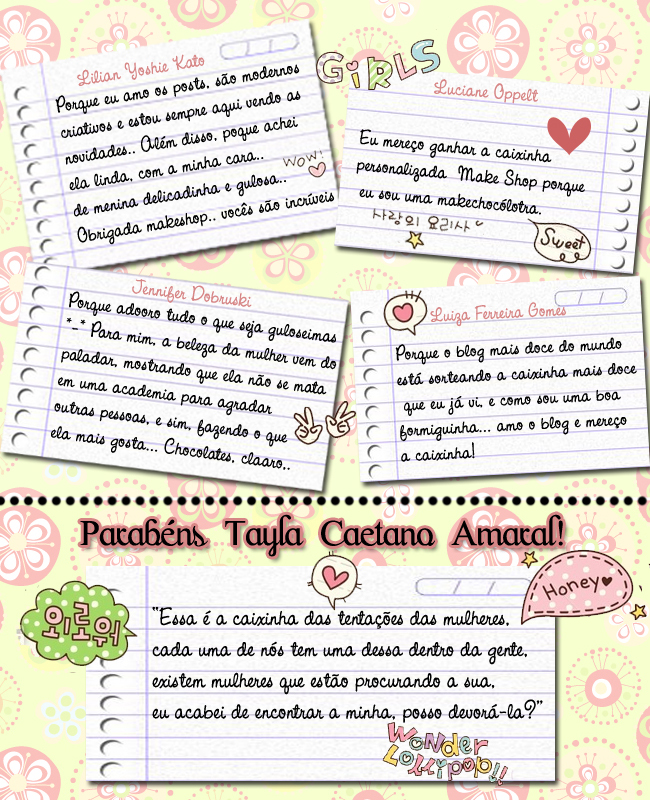 Lilian Yoshie Kato
Porque eu amo os posts, são modernos
criativos e estou sempre aqui vendo as
novidades.. Além disso, poque achei
ela linda, com a minha cara..
de menina delicadinha e gulosa..
Obrigada makeshop.. vocês são incríveis
WOW!
GiRLS
Luciane Oppelt
Eu mereço ganhar a caixinha
personalizada Make Shop porque
eu sou uma makechocólotra.
사랑의 요리사
Sweet
Jennifer Dobruski
Porque adooro tudo o que seja guloseimas
*-* Para mim, a beleza da mulher vem do
paladar, mostrando que ela não se mata
em uma academia para agradar
outras pessoas, e sim, fazendo o que
ela mais gosta... Chocolates, claaro..
Luiza Ferreira Gomes
Porque o blog mais doce do mundo
está sorteando a caixinha mais doce
que eu já vi, e como sou uma boa
formiguinha... amo o blog e mereço
a caixinha!
Parabéns Tayla Caetano Amaral!
외로워
Honey♥
"Essa é a caixinha das tentações das mulheres,
cada uma de nós tem uma dessa dentro da gente,
existem mulheres que estão procurando a sua,
eu acabei de encontrar a minha, posso devorá-la?"
WoNDeR
LoLLiPoP!!